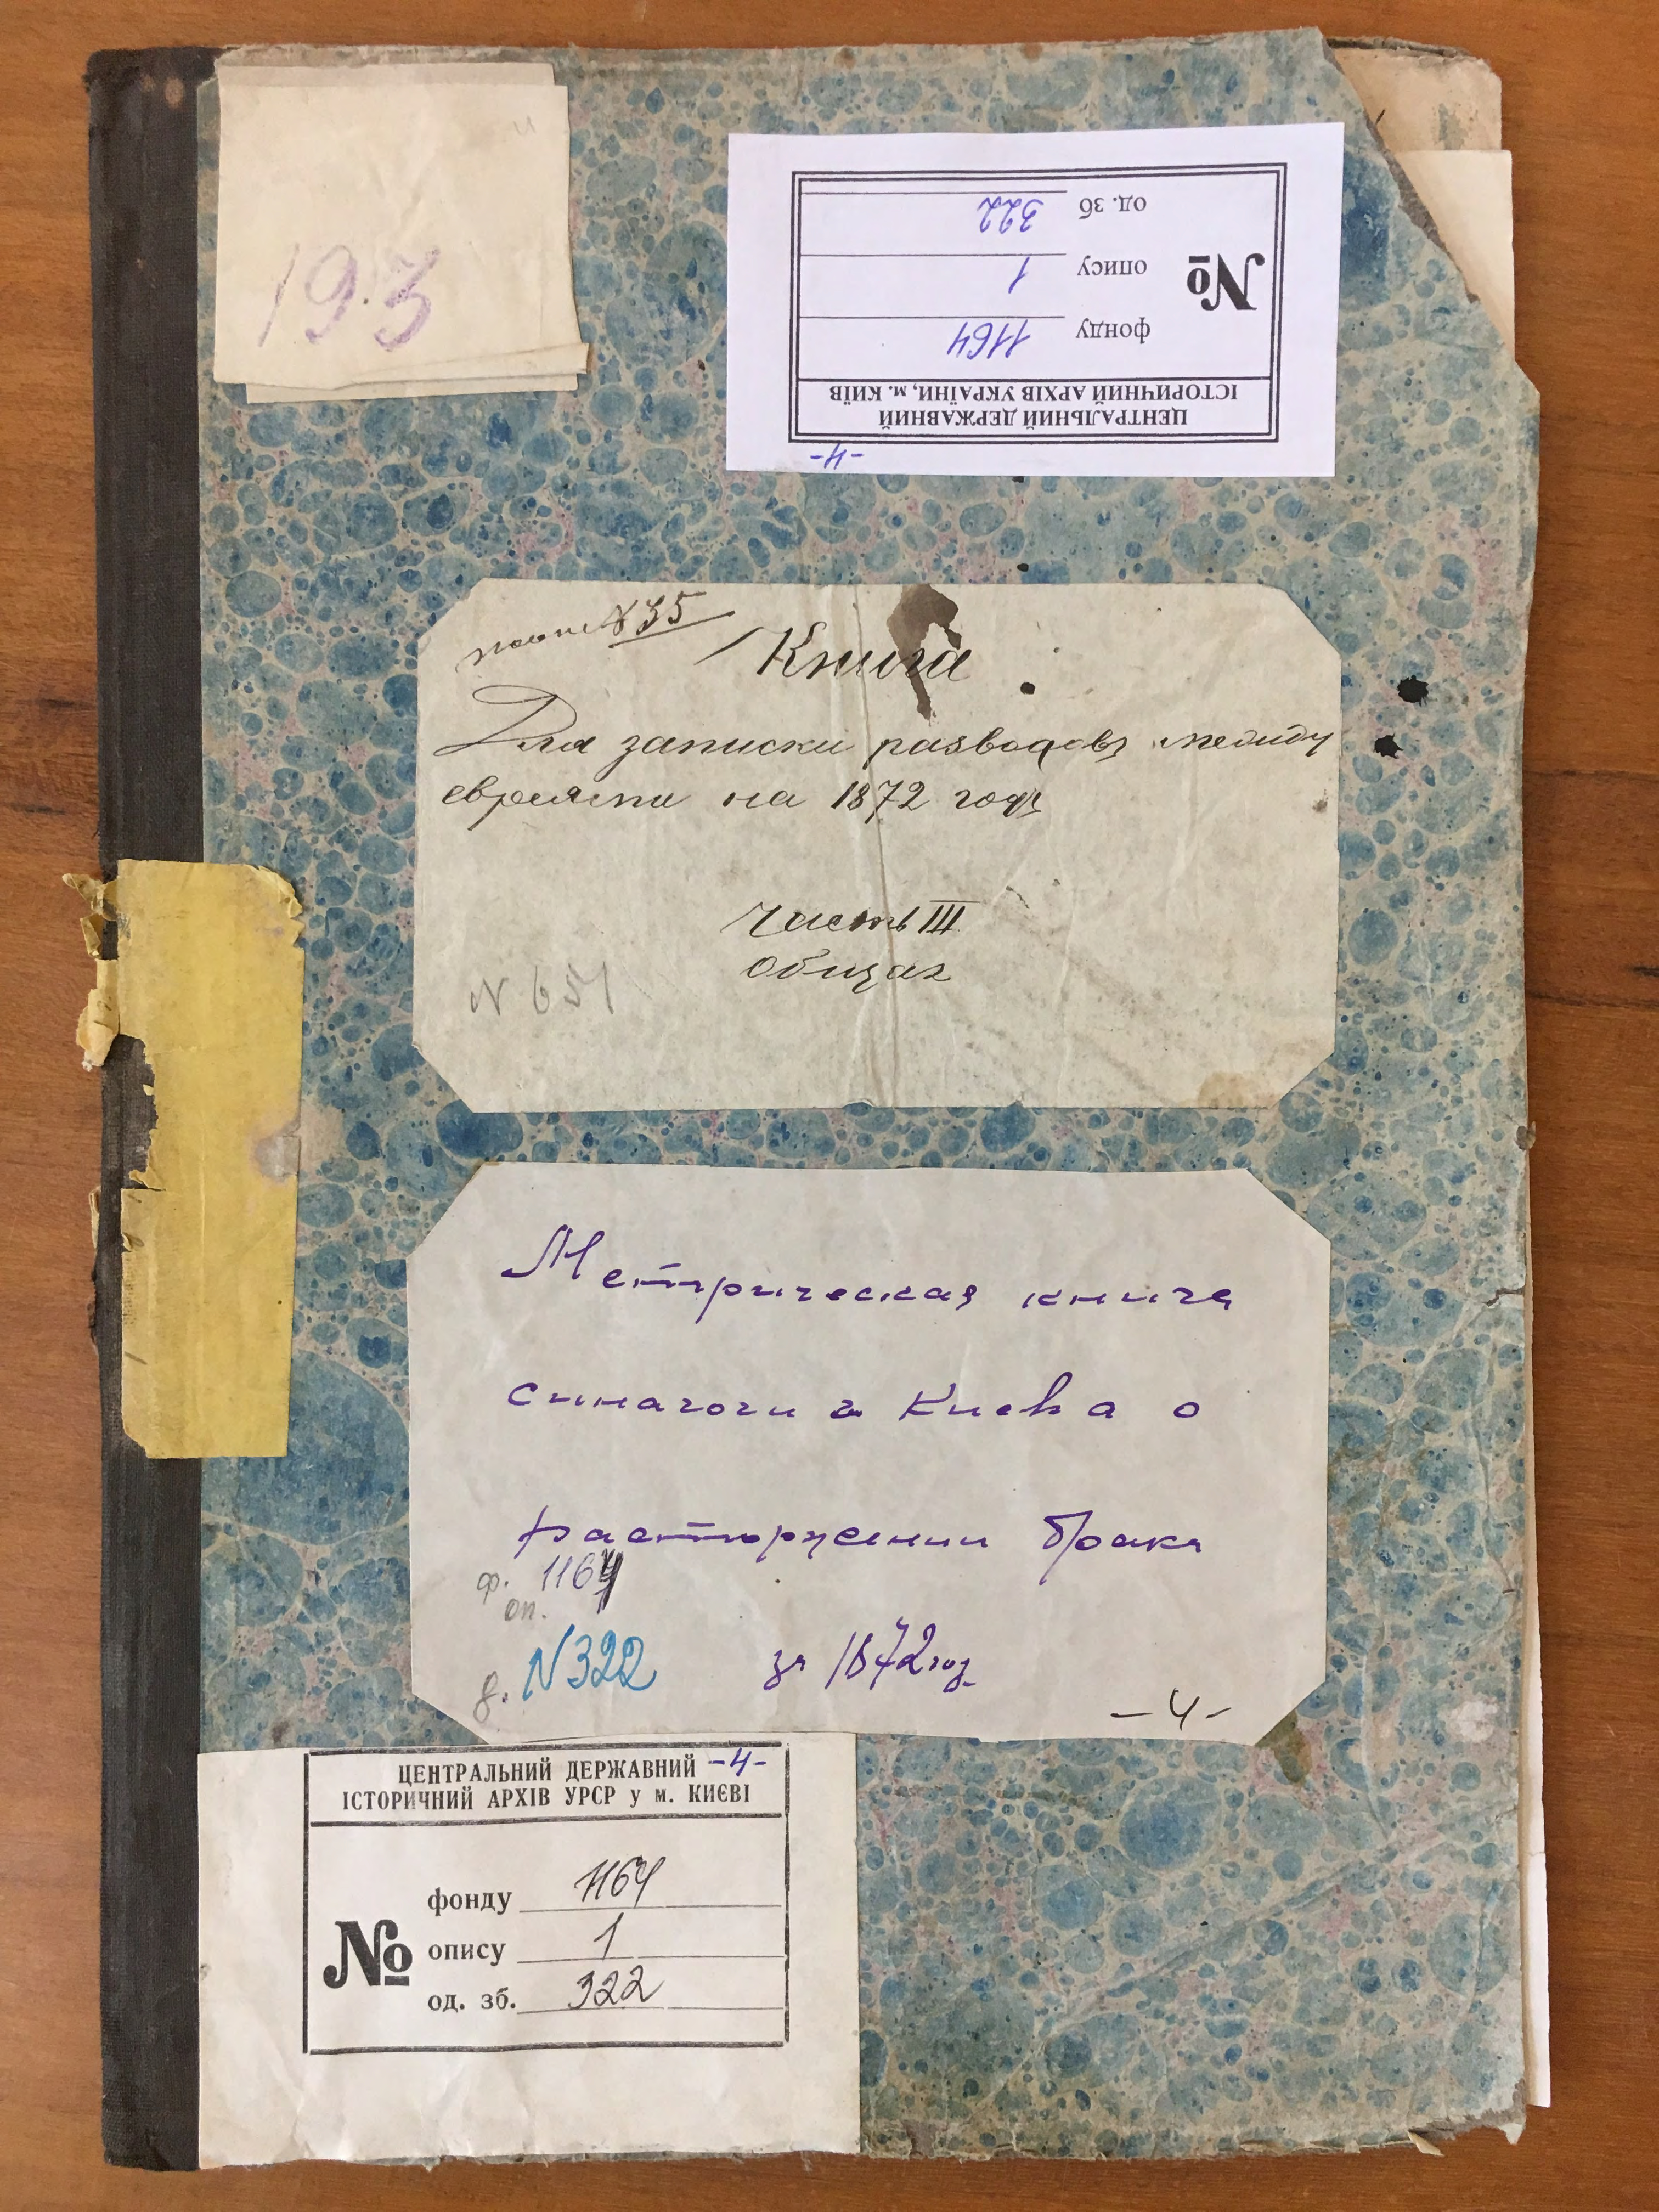 193
-4-
ЦЕНТРАЛЬНИЙ ДЕРЖАВНИЙ
ІСТОРИЧНИЙ АРХІВ УКРАЇНИ, м. КИЇВ
№
фонду 1164
опису 1
од. зб 322
№ 35
Книга
Для записки разводовъ между
евреями на 1872 годъ
Часть III
общая
N 654
Метрическая книга
синагоги г. Киева о
расторжении брака
ф. 1164
оп.
д. N 322 за 1872 год
-4-
ЦЕНТРАЛЬНИЙ ДЕРЖАВНИЙ -4-
ІСТОРИЧНИЙ АРХІВ УРСР у м. КИЄВІ
№
фонду 1164
опису 1
од. зб. 322